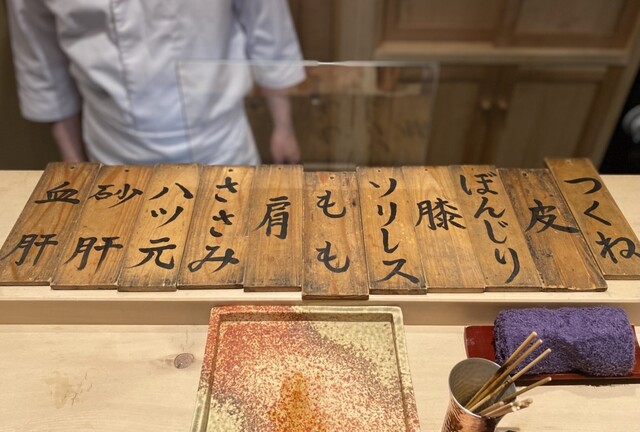 つくね
皮
ぼんじり
膝
ソリレス
もも
肩
ささみ
ハツ元
砂肝
血肝